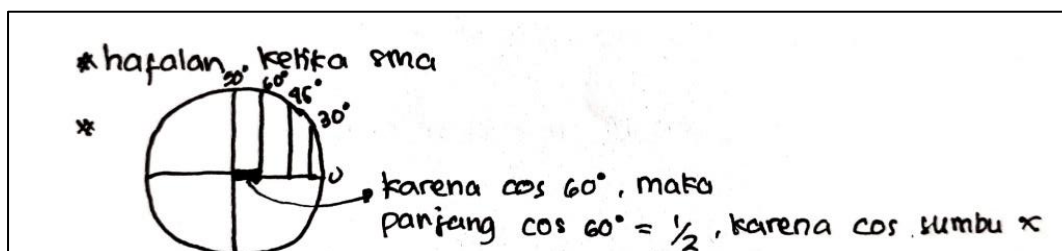 * hafalan ketika sma
90° 60° 45° 30° 0
*
karena cos 60°, maka
panjang cos 60° = 1/2, karena cos sumbu x